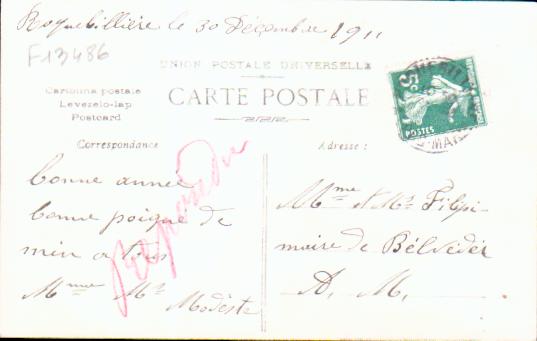 Roquebillière le 30 Décembre 1911
F13486
UNION POSTALE UNIVERSELLE
Cartolina postale
Levelezo-lap
Postcard
CARTE POSTALE
5c
POSTES
Correspondance
Adresse :
bonne année
bonne poigne de
min a tous
Mme Mr
Modèste
Répondu
Mme & Mr Filipi
maire de Bélvédèr
A. M.